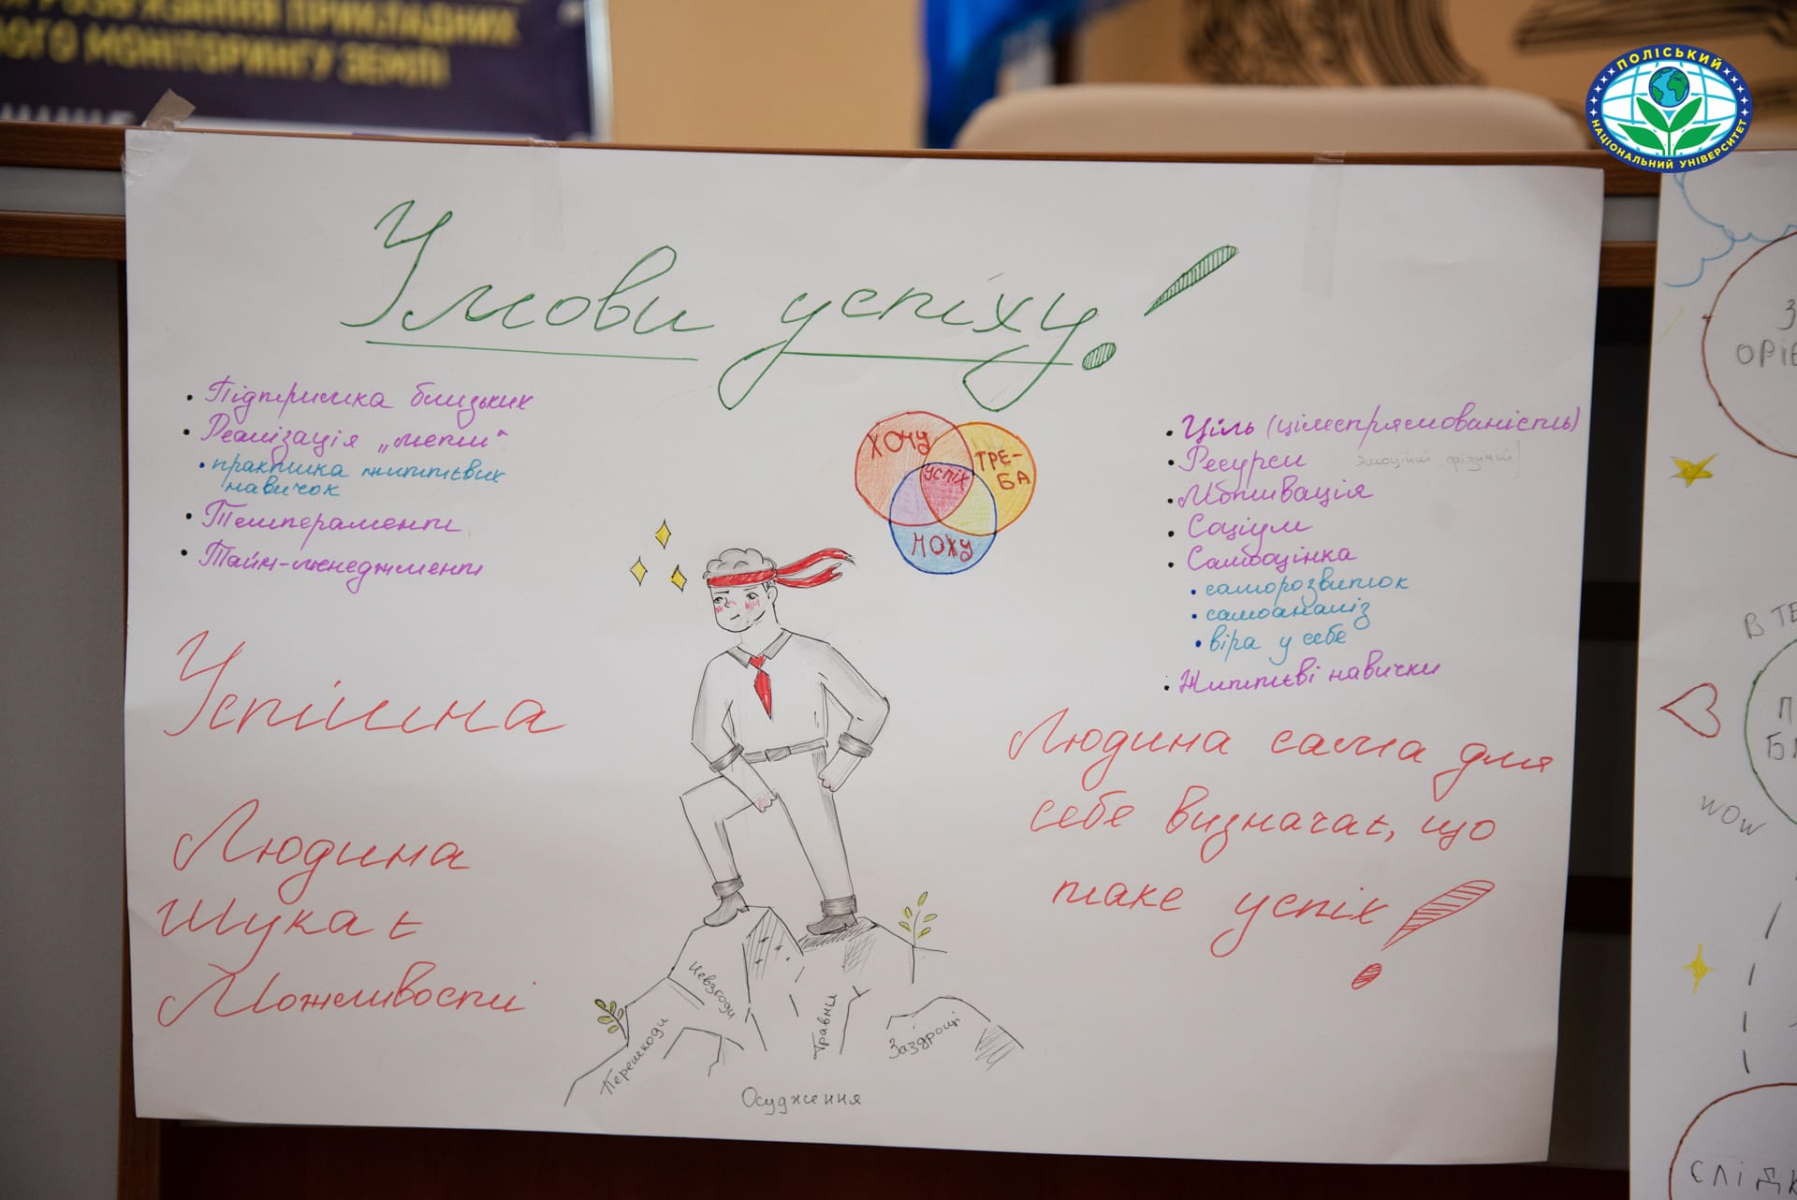 РОЗВ'ЯЗАННЯ ПРИКЛАДНИХ
ОГО МОНІТОРИНГУ ЗЕМЛІ
ПОЛІСЬКИЙ
НАЦІОНАЛЬНИЙ УНІВЕРСИТЕТ
Умови успіху!
• Підтримка близьких
• Реалізація „мети“
• практика життєвих
навичок
• Темперамент
• Тайм-менеджмент
ХОЧУ
ТРЕ-
БА
УСПІХ
МОЖУ
• Ціль (цілеспрямованість)
• Ресурси
• Мотивація
• Соціум
• Самооцінка
• саморозвиток
• самоаналіз
• віра у себе
• Життєві навички
Успішна
Людина
Шукає
Можливості
Людина сама для
себе визначає, що
таке успіх!
Невзгоди
Перешкоди
Травми
Заздрощі
Осудження
ОРІЄ
В ТЕ
WOW
СЛІДК